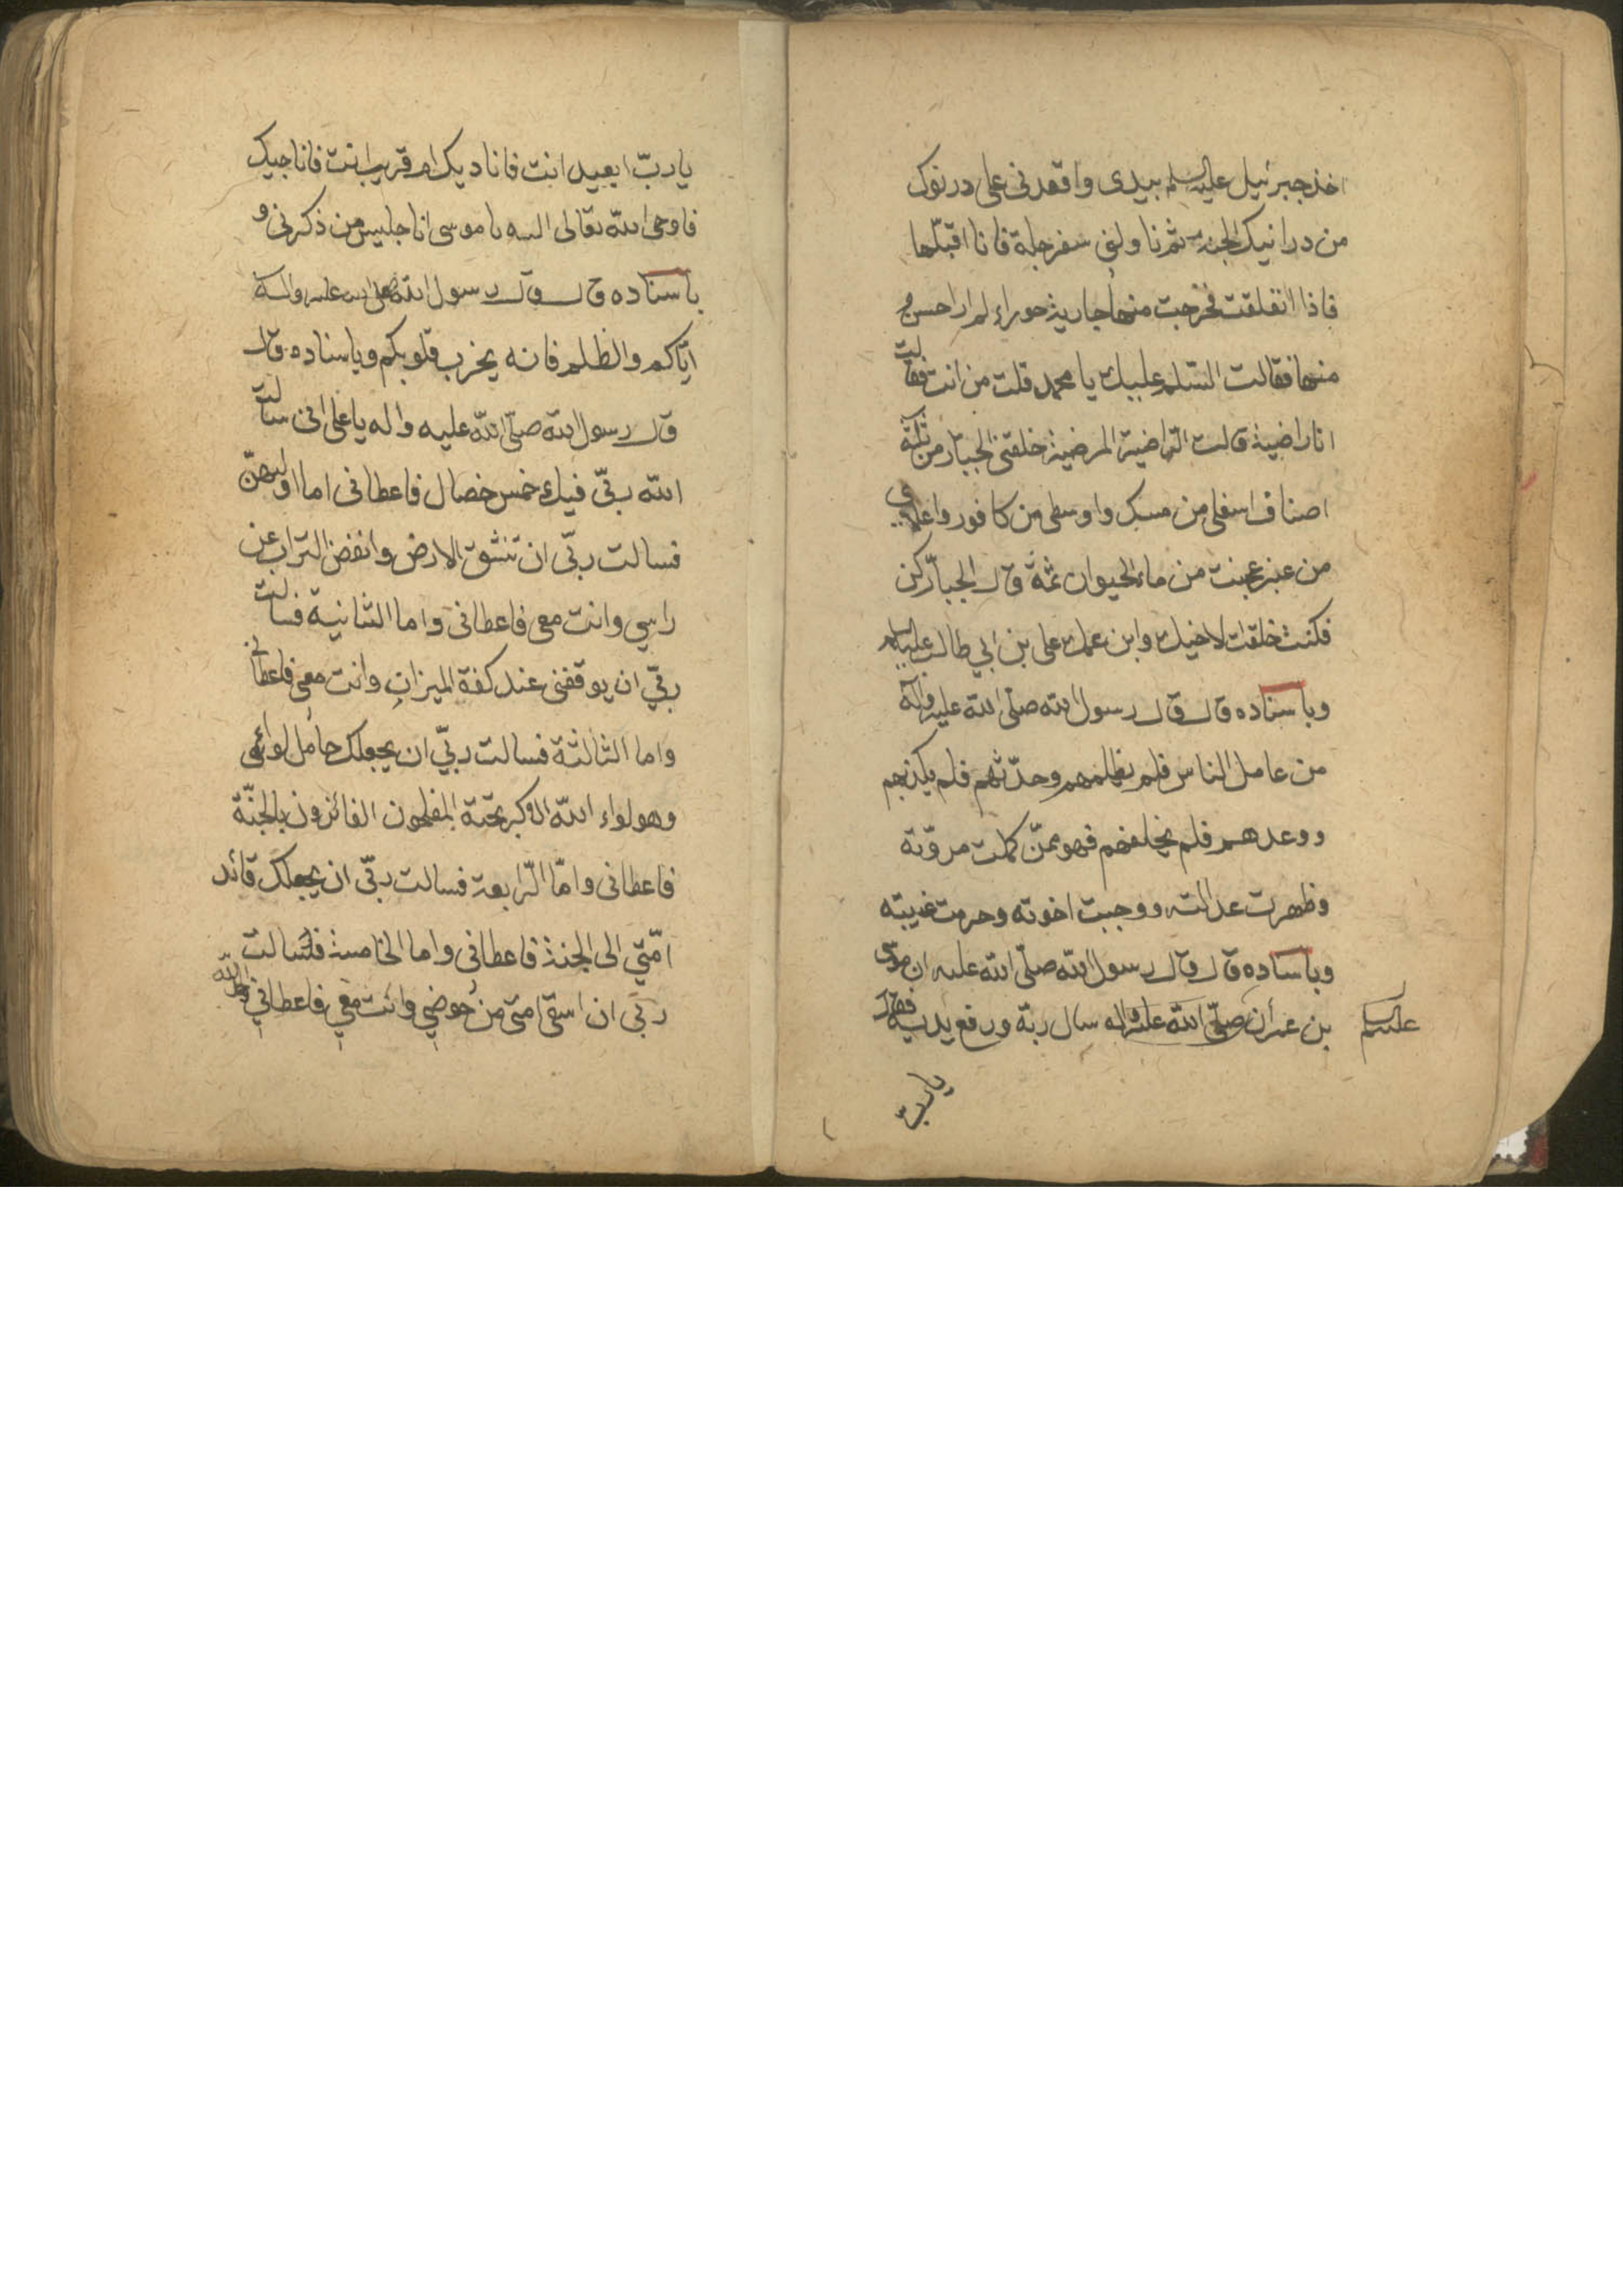 اخذ جبرئيل عليه السلم بيدى واقعدنى على درنوك
من درانيك الجنه ثم ناولنى سفرجلة فانا اقبلها
فاذا انفلقت فخرجت منها جارية حوراء لم ار احسن
منها فقالت السّلم عليك يا محمد قلت من انت فقالت
انا راضية قالت الراضية المرضية خلقنى الجبار من ثلثة
اصناف اسفلى من مسك واوسطى من كافور واعلاى
من عنبر عجنت من ماء الحيوان ثمة قال الجبّار كن
فكنت خلقت لاخيك وابن عمك على بن ابي طالب عليه السلم
وباسناده قال قال رسول الله صلّى الله عليه وآله
من عامل الناس فلم يظلمهم وحدّثهم فلم يكذبهم
ووعدهم فلم يخلفهم فهو ممّن كملت مروّته
وظهرت عدالته ووجبت اخوته وحرمت غيبته
وباسناده قال قال رسول الله صلّى الله عليه ان موسى
بن عمران صلّى الله عليه واله سال ربّه ورفع يديه فقال
عليه السلم
يا ربّ
يا ربّ ابعيد انت فاناديك ام قريب انت فاناجيك
فاوحى الله تعالى اليه يا موسى انا جليس من ذكرنى و
باسناده قال قال رسول الله صلى الله عليه واله
ايّاكم والظلم فانه يخرب قلوبكم وباسناده قال
قال رسول الله صلّى الله عليه واله يا على انى سالت
الله ربّى فيك خمس خصال فاعطانى اما اولهنّ
فسالت ربّى ان تنشق الارض وانفض التراب عن
راسي وانت معى فاعطانى واما الثانية فسالت
ربّي ان يوقفنى عند كفة الميزان وانت معى فاعطانى
واما الثالثة فسالت ربّي ان يجعلك حامل لوائى
وهو لواء الله الاكبر تحته المفلحون الفائزون بالجنّة
فاعطانى وامّا الرّابعة فسالت ربّى ان يجعلك قائد
امّتي الى الجنة فاعطانى واما الخامسة فسالت
ربّى ان اسقى امتى من حوضي وانت معي فاعطاني